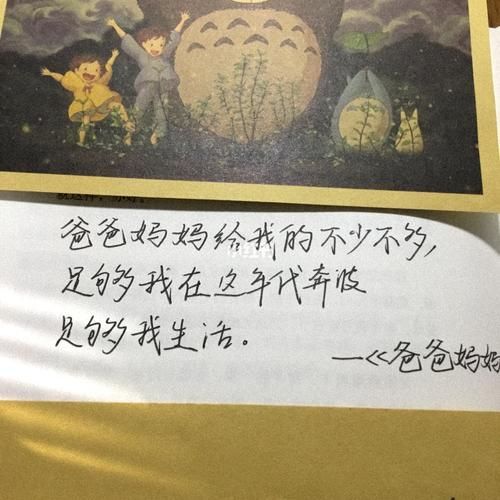 爸爸妈妈给我的不少不多,
足够我在这年代奔波
足够我生活。
—《爸爸妈妈